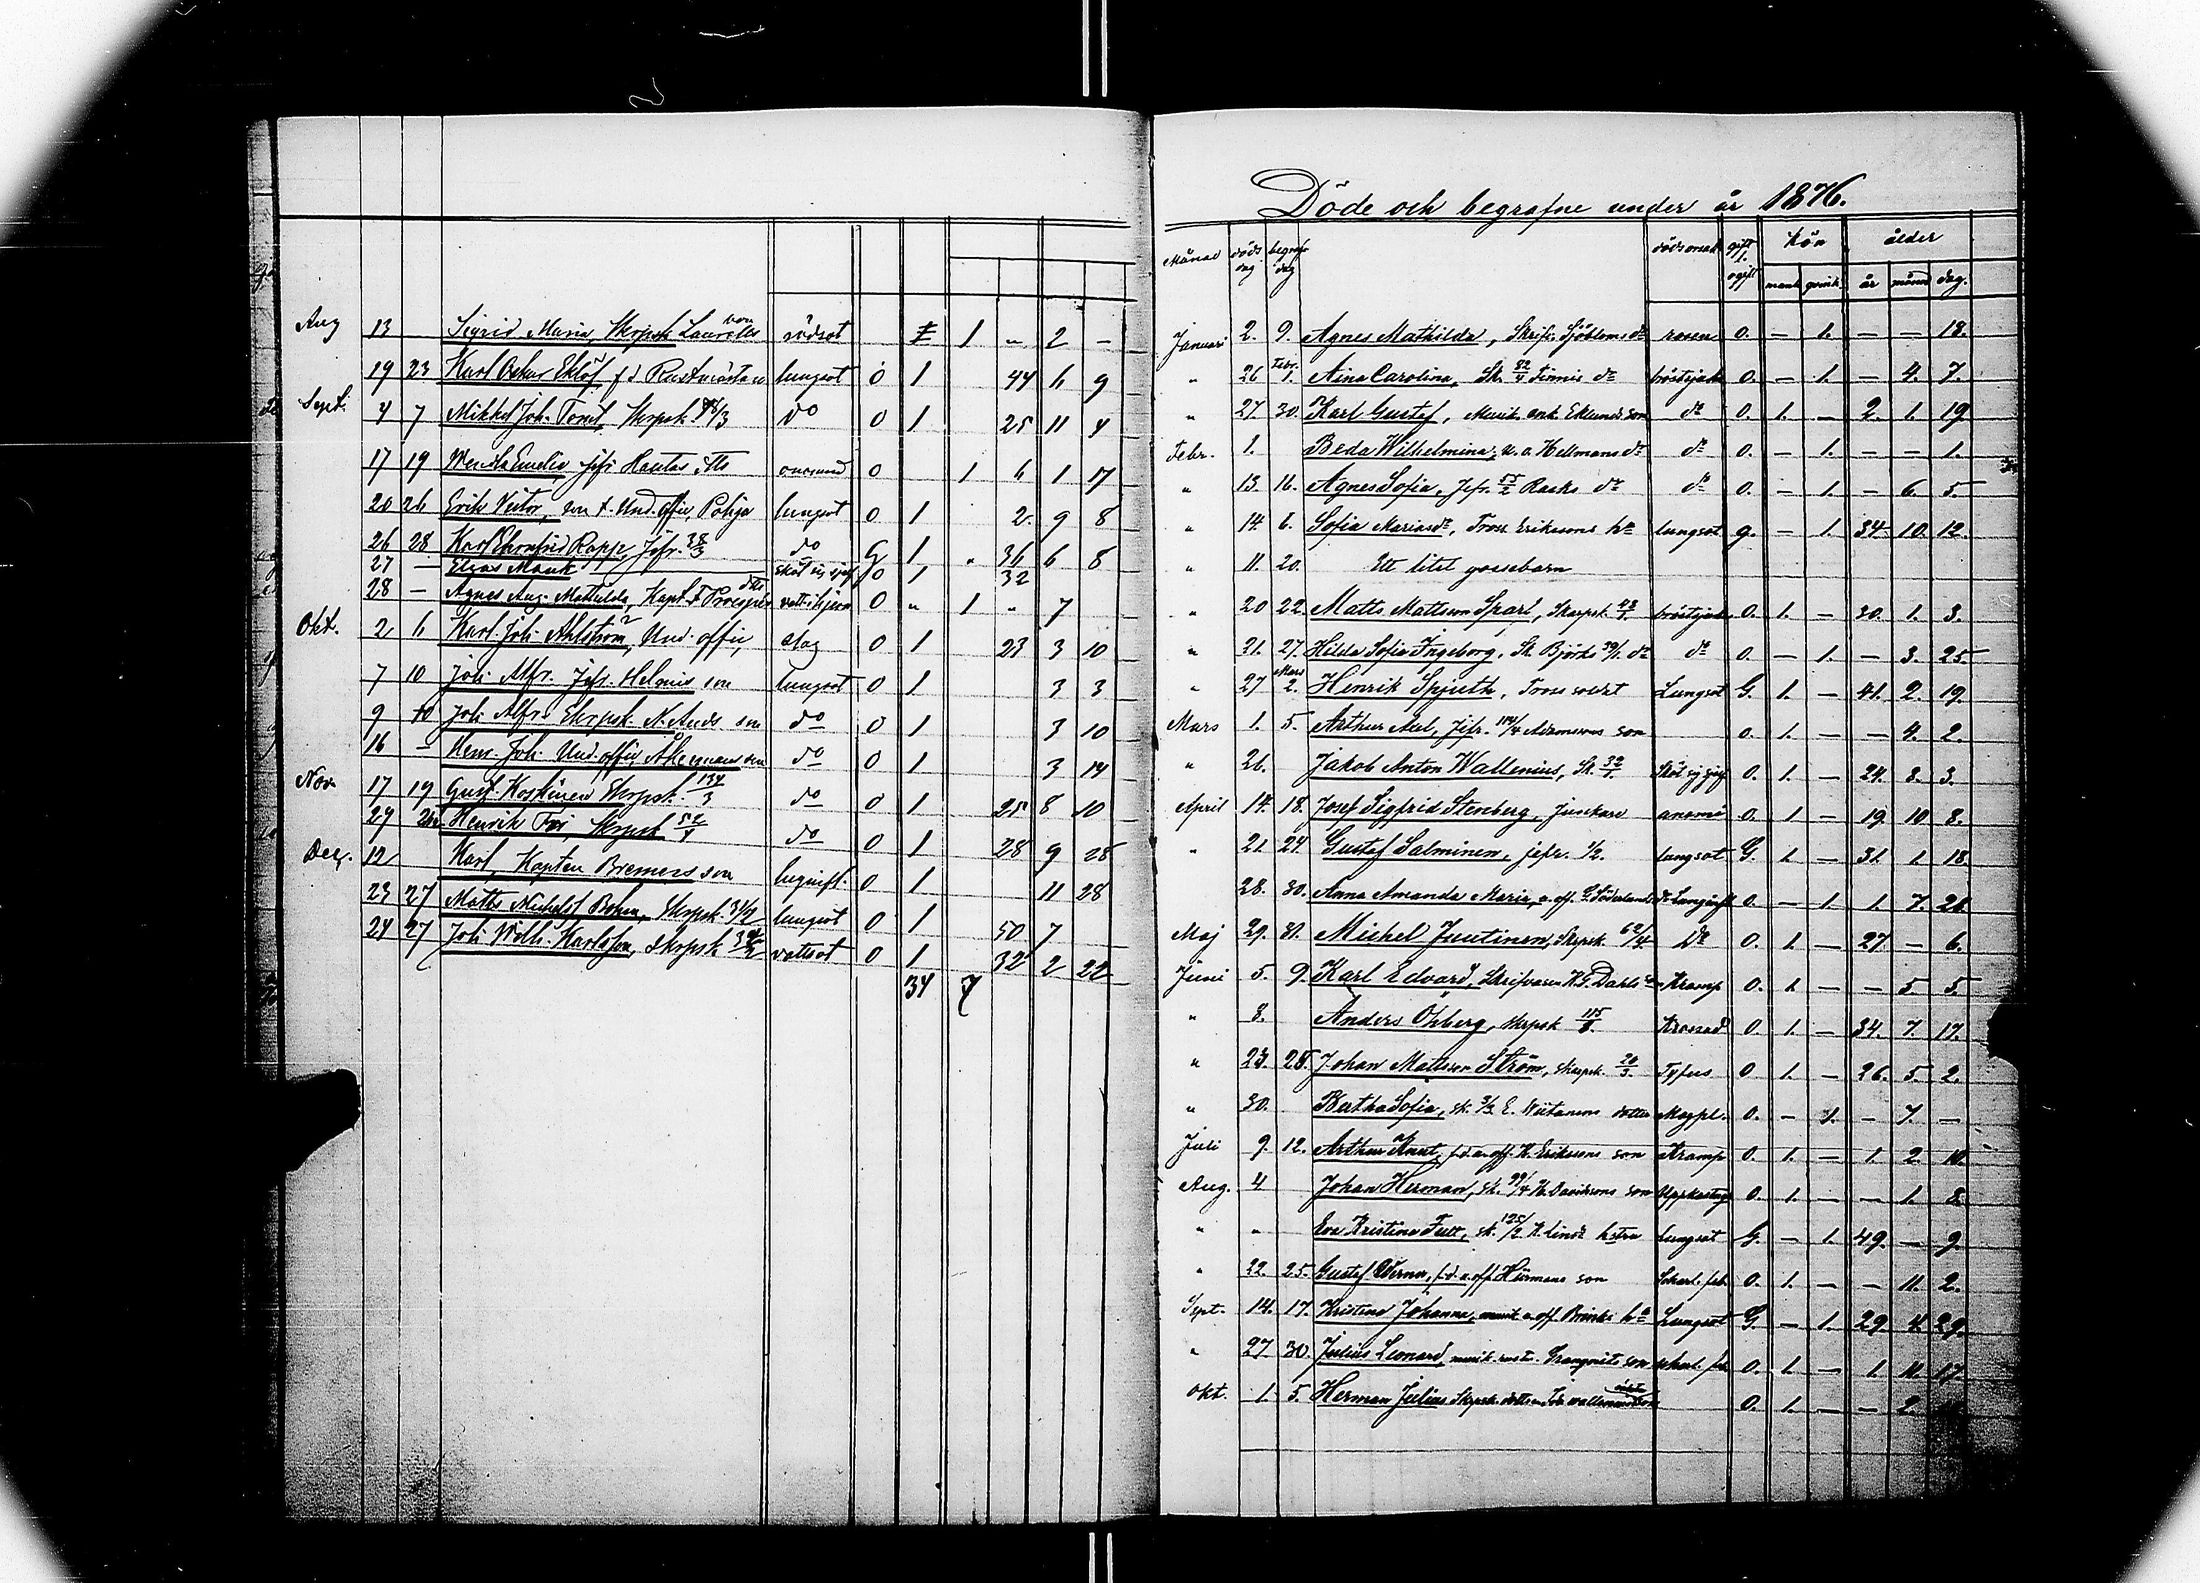 Aug 13 Sigrid Maria, Skrpsk Laurells rödsot 1 " 2 –
19 23 Karl Oskar Eklöf, f.d. Rustmästare lungsot o 1 44 6 9
Sept. 4 7 Mikkel Joh. Tomt, Skrpsk. do o 1 25 11 4
17 19 Wendla Emelia, Jefr Hautas dttr o 1 6 1 17
20 26 Erik Victor, son f. Und.offic. Pohja lungsot o 1 2 9 8
26 28 Karl Ehrnfrid Roppe, Jefr. 38/3 do G 1 " 36 6 8
27 – Elias Mauk sköt sig sjelf o 1 32
28 – Agnes Aug. Mathilda, Kapt. dttr vatt. i hjern o " 1 " 7
Okt. 2 6 Karl. Joh. Ahlström, Und. offic, slag o 1 23 3 10
7 10 Joh. Alfr. Jefr. Helmis son lungsot o 1 3 3
9 10 Joh. Alfr. Skrpsk. N. Ands. son do o 1 3 10
16 – Herm. Joh. Und.offic Åkermans son do o 1 3 14
Nov. 17 19 Gust. Koskinen Skrpsk. 134/3 do o 1 25 8 10
29 Henrik Foi, Skrpsk 52/4 do o 1 28 9 28
Dec. 12 Karl, Kapten Bremers son luginfl. o 1 11 28
23 27 Matts Michelsf Bohm, Skrpsk. lungsot o 1 50 7
24 27 Joh. Wilh. Karlsson, Skrpsk vattsot o 1 32 2 22
34 7
Döde och begrafne under år 1876.
Månad döds dag begrafn dag dödsorsak gift l. ogift Kön ålder
mank. qvink. år månd dag.
Januari 2. 9. Agnes Mathilda, Skrifv. Sjöbloms dr rosen o. – 1. – – 18.
" 26 Febr. 1. Aina Carolina, Sk. 82/4 Finnes dr bröstsjuk o. – 1. – 4. 7.
" 27 30. Karl Gustaf, Musik. ank. Eklunds son do o. 1. – 2. 1. 19
Febr. 1. Beda Wilhelmina, u.o. Hellmans dr do o. – 1. – – 1.
" 13 16. Agnes Sofia, Jefr. 55/2 Rasks dr do o. – 1. – 6. 5.
" 14. 6. Sofia Mariasdr, Tross Erikssons hu lungsot g. – 1. 34. 10. 12.
" 11. 20. Ett litet gossebarn
" 20 22. Matts Mattsson Sparf, Skarpsk. bröstsjuk o. 1. – 30. 1. 3.
" 21. 27. Hilda Sofia Ingeborg, Sk. Björks 39/1. dr do o. – 1. – 3. 25.
" 27 Mars 2. Henrik Spjuth, Tross soldt Lungsot G. 1. – 41. 2. 19.
Mars 1. 5. Arthur Axel, Jefr. 114/4 Adamssons son o. 1. – – 4. 2.
" 26. Jakob Anton Wallenius, Sk. 32/1. Sköt sig sjelf o. 1. – 24. 8. 3.
April 14. 18. Josef Sigfrid Stenberg, Junkare anemi o. 1 – 19. 10 8.
" 21. 24. Gustaf Salminen, jefr. 1/2. lungsot G. 1. – 31. 1. 18.
28. 30. Anna Amanda Maria, u.off. G. Söderlunds dr Lunginfl. o. – 1. 1. 7. 21
Maj 29. 31. Michel Juutinen, Skrpsk. 62/4. Do o. 1. – 27 – 6.
Juni 5. 9. Karl Edvard, Skrifvaren K.G. Dahls son Kramp o. 1. – – 5. 5.
" 8. Anders Öhberg, Skrpsk 115/8. o. 1. – 34. 7. 17.
" 23. 28. Johan Mattsson Ström, Skarpsk. 20/3. Tyfus o 1. – 26. 5. 2.
" 30. Bertha Sofia, sk. 3/3 E. Wiitanens dotter Magpl. o. – 1. – 7. –
Juli 9. 12. Arthur Knut, f.d. u.off. K. Erikssons son Kramp o. 1. – 1. 2. 10.
Aug. 4 Johan Herman, sk. 99/4 K. Davidssons son Uppkastng o. 1. – – 1. 8.
" " Eva Kristina Fült, sk. 125/2 K. Linds hstru Lungsot G. – 1. 49. – 9.
" 22. 25. Gustaf Werner, f.d. u.off. Hürmans son Scharl. feb. o. 1. – – 11. 2.
Sept. 14. 17. Kristina Johanna, musik u.off. Brinks hu Lungsot G. – 1. 29. 4. 29.
" 27. 30. Julius Leonard, musik. rustm. Granqvists son scharl. feb. o. 1. – 1. 11. 17.
Okt. 1. 5. Herman Julius Skrpsk. o. 1. – – 2.